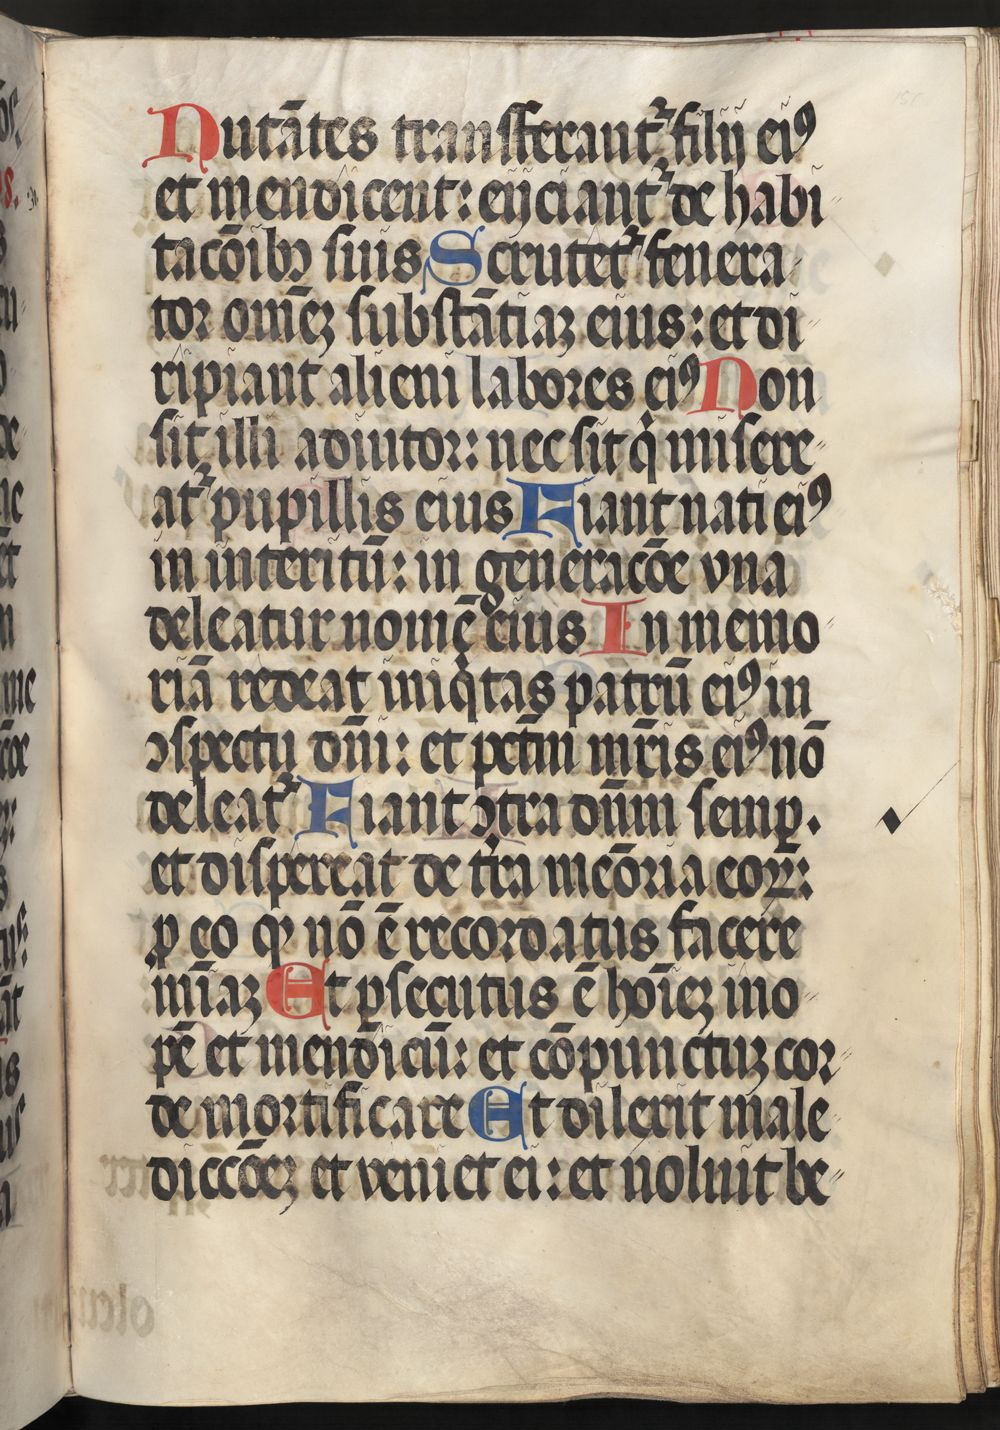 Nutātes transferant᷑ filij eiꝰ
et mendicent: eijciant᷑ de habi
tacōibꝫ suis Scrutet᷑ fenera
tor om̄eꝫ substātiaꝫ eius: et di
ripiant alieni labores eiꝰ Non
sit illi adiutor: nec sit qͥ misere
at᷑ pupillis eius Fiant nati eiꝰ
in interitū: in generacōe vna
deleatur nomē eius In memo
riā redeat iniqͥtas patrū eiꝰ in
ꝯspectu dn̄i: et pctm̄ mr̄is eiꝰ nō
deleat᷑ Fiant ꝯtra dn̄m semꝑ.
et dispereat de tr̄a meōria eoꝝ:
ꝓ eo qꝫ nō ē recordatus facere
mīaꝫ Et ꝑsecutus ē hoīeꝫ ino
pē et mendicū: et cōpunctuꝫ cor
de mortificare Et dilexit male
diccōeꝫ et veniet ei: et noluit be